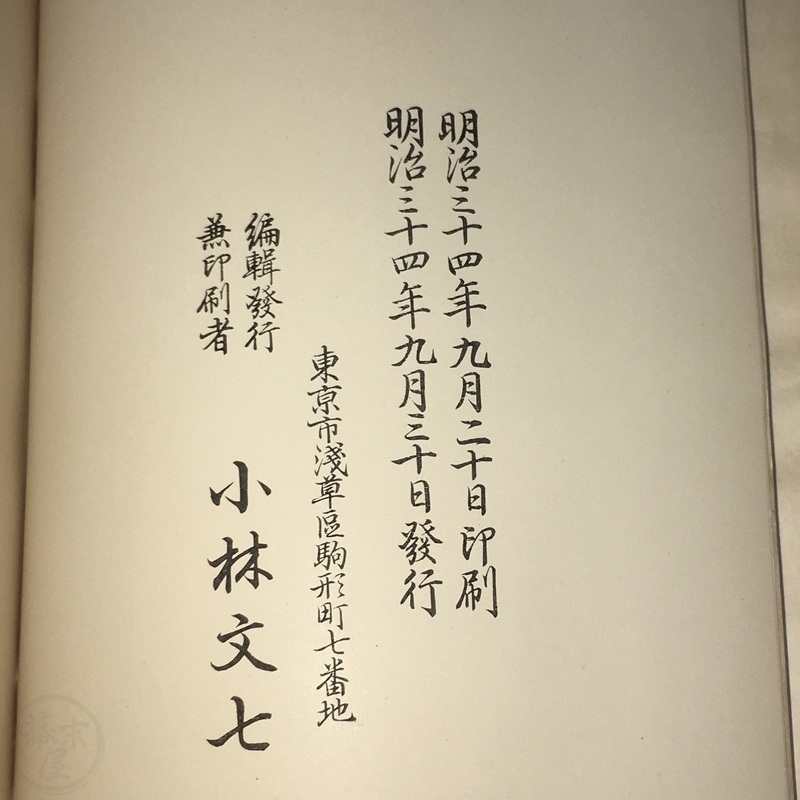 明治三十四年九月二十日印刷
明治三十四年九月三十日發行
東京市淺草區駒形町七番地
編輯發行
兼印刷者
小林文七